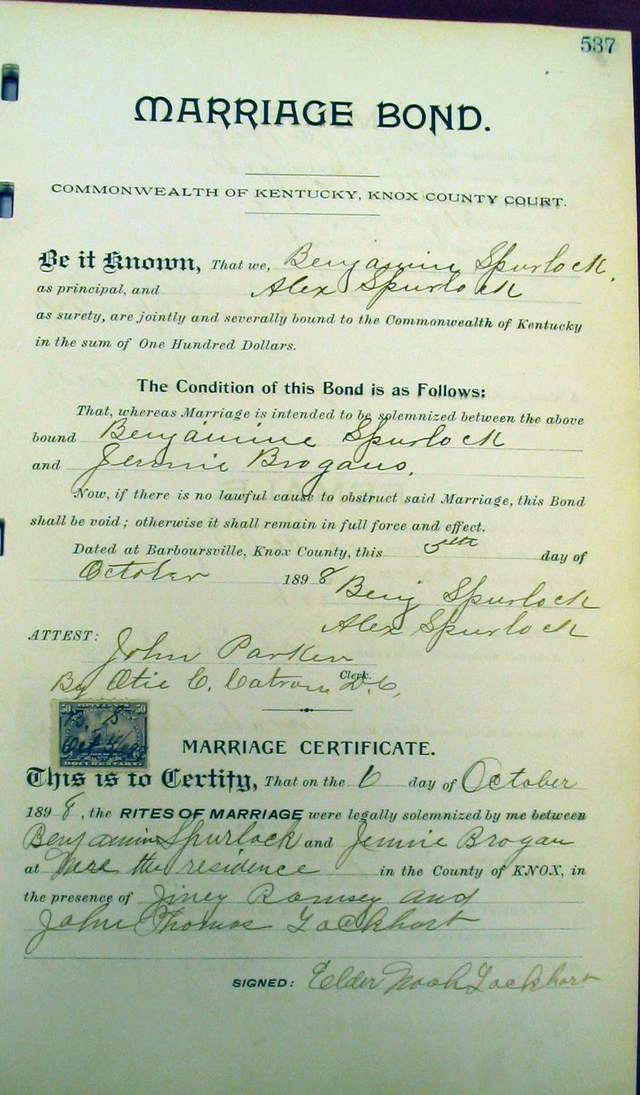 537
MARRIAGE BOND.
COMMONWEALTH OF KENTUCKY, KNOX COUNTY COURT.
Be it Known, That we, Benjamine Spurlock,
as principal, and Alex Spurlock
as surety, are jointly and severally bound to the Commonwealth of Kentucky
in the sum of One Hundred Dollars.
The Condition of this Bond is as Follows:
That, whereas Marriage is intended to be solemnized between the above
bound Benjamine Spurlock
and Jennie Brogans.
Now, if there is no lawful cause to obstruct said Marriage, this Bond
shall be void; otherwise it shall remain in full force and effect.
Dated at Barboursville, Knox County, this 5th day of
October 1898
Benj Spurlock
Alex Spurlock
ATTEST:
John Parker
Clerk.
By Otie C. Catron D.C,
50 50
B. S
Oct
DOCUMENTARY
MARRIAGE CERTIFICATE.
This is to Certify, That on the 6 day of October
1898, the RITES OF MARRIAGE were legally solemnized by me between
Benjamine Spurlock and Jennie Brogan
at the residence in the County of KNOX, in
the presence of Jiney Ramsey and
John Thomas Lockhart
SIGNED: Elder Noah Lockhart